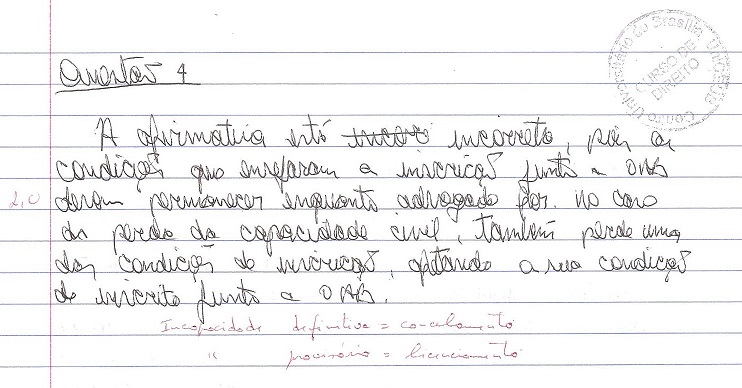 Centro Universitário de Brasília UniCEUB
CURSO DE
DIREITO
Questão 4
A afirmativa está incorreta, pois as
condições que ensejaram a inscrição junto a OAB
2,0 devem permanecer enquanto advogado for. No caso
da perda da capacidade civil, também perde uma
das condições de inscrição, afetando a sua condição
de inscrito junto a OAB.
Incapacidade definitiva = cancelamento
" provisória = licenciamento